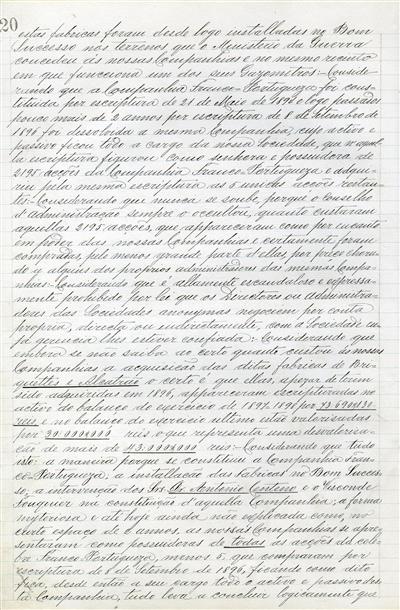 20
estas fabricas foram desde logo installadas no Bom
Successo nos terrenos que o Ministerio da Guerra
concedeu ás nossas Companhias e no mesmo recinto
em que funcciona um dos seus Gazometros:- Conside-
rando que a Companhia Franco-Portugueza foi cons-
tituida por escriptura de 21 de Maio de 1894 e logo passados
pouco mais de 2 annos por escriptura de 8 de Setembro de
1896 foi dissolvida a mesma Companhia cujo activo e
passivo ficou todo a cargo da nossa Sociedade, que n'aquel-
la escriptura figurou como senhora e possuidora de
2195 acções da Companhia Franco-Portugueza e adqui-
riu pela mesma escriptura as 5 unicas acções restan-
tes:- Considerando que nunca se soube, porque o Conselho
d'administração sempre o occultou, quanto custaram
aquellas 2195 acções, que appareceram como por encanto
em poder das nossas Companhias e certamente foram
compradas, pelo menos grande parte d'ellas, por preço
a alguns dos proprios administradores das mesmas Compa-
nhias:- Considerando que é altamente escandaloso e expressa-
mente prohibido por lei que os Directores ou administra-
dores das Sociedades anonymas negoceiem por conta
propria, directa ou indirectamente, com a Sociedade cu-
ja gerencia lhes estiver confiada:- Considerando que
embora se não saiba ao certo quanto custou ás nossas
Companhias a acquisição das ditas fabricas de Bri-
quettes e Alcatrão o certo é que ellas, apezar de terem
sido adquiridas em 1896, appareceram escripturadas no
activo do balanço do exercicio de 1897-1898 por
reis e no balanço do exercicio ultimo estão valorisadas
por 30.000$000 reis o que representa uma desvalorisa-
ção de mais de 43.000$000 reis:- Considerando que tudo
isto: a maneira porque se constituiu a Companhia Fran-
co-Portugueza, a installação das fabricas no Bom Succes-
so, a intervenção dos Srs. Dr. Antonio Centeno e o Visconde
na constituição d'aquella Companhia; a forma
mysteriosa e até hoje ainda não explicada como, no
curto espaço de 2 annos, as nossas Companhias se apre-
sentaram como possuidoras de todas as acções da cele-
bre Franco-Portugueza, menos 5, que compraram por
escriptura de 8 de Setembro de 1896, ficando como dito
fica, desde então a seu cargo todo o activo e passivo des-
ta Companhia, tudo leva a concluir logicamente que